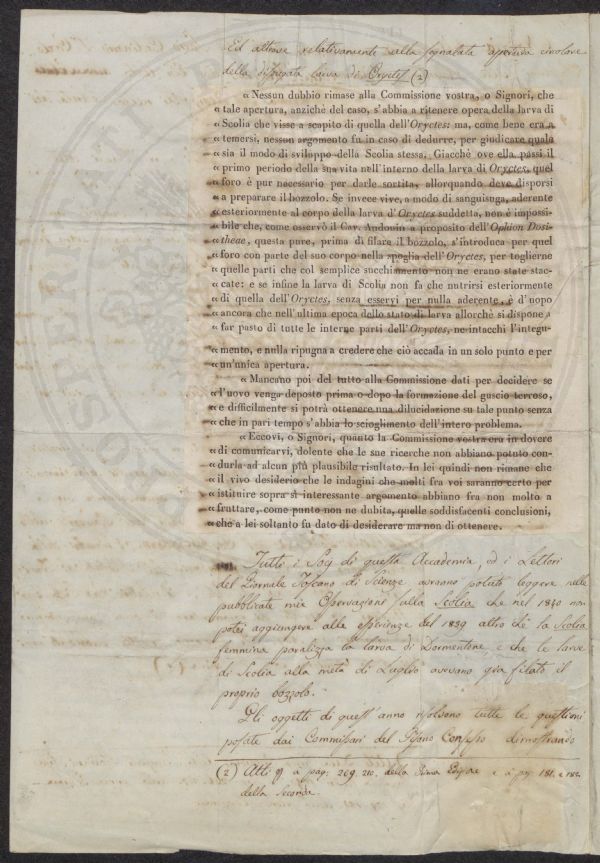 Ed altrove relativamente alla segnalata apertura circolare
della disseccata larva di Oryctes (2)
« Nessun dubbio rimase alla Commissione vostra, o Signori, che
« tale apertura, anzichè del caso, s'abbia a ritenere opera della larva di
« Scolia che visse a scapito di quella dell'Oryctes: ma, come bene era a
« temersi, nessun argomento fu in caso di dedurre, per giudicare quale
« sia il modo di sviluppo della Scolia stessa. Giacchè ove ella passi il
« primo periodo della sua vita nell'interno della larva di Oryctes, quel
« foro è pur necessario per darle sortita, allorquando deve disporsi
« a preparare il bozzolo. Se invece vive, a modo di sanguisuga, aderente
« esteriormente al corpo della larva d'Oryctes suddetta, non è impossi-
« bile che, come osservò il Cav. Audouin a proposito dell'Ophion Dosi-
« theae, questa pure, prima di filare il bozzolo, s'introduca per quel
« foro con parte del suo corpo nella spoglia dell'Oryctes, per toglierne
« quelle parti che col semplice succhiamento non ne erano state stac-
« cate: e se infine la larva di Scolia non fa che nutrirsi esteriormente
« di quella dell'Oryctes, senza esservi per nulla aderente, è d'uopo
« ancora che nell'ultima epoca dello stato di larva allorchè si dispone a
« far pasto di tutte le interne parti dell'Oryctes, ne intacchi l'integu-
« mento, e nulla ripugna a credere che ciò accada in un solo punto e per
« un'unica apertura.
« Mancano poi del tutto alla Commissione dati per decidere se
« l'uovo venga deposto prima o dopo la formazione del guscio terroso,
« e difficilmente si potrà ottenere una dilucidazione su tale punto senza
« che in pari tempo s'abbia lo scioglimento dell'intero problema.
« Eccovi, o Signori, quanto la Commissione vostra ora in dovere
« di comunicarvi, dolente che le sue ricerche non abbiano potuto con-
« durla ad alcun più plausibile risultato. In lei quindi non rimane che
« il vivo desiderio che le indagini che molti fra voi saranno certo per
« istituire sopra sì interessante argomento abbiano fra non molto a
« fruttare, come punto non ne dubita, quelle soddisfacenti conclusioni,
« che a lei soltanto fu dato di desiderare ma non di ottenere.
Tutti i Socj di questa Accademia, ed i Lettori
del Giornale Toscano di Scienze avranno potuto leggere nelle
pubblicate mie Osservazioni sulla Scolia che nel 1840 non
potei aggiungere alle esperienze del 1839 altro chè la Scolia
femmina paralizza la larva di Dormentone e che le larve
di Scolia alla metà di Luglio avevano già filato il
proprio bozzolo.
Gli oggetti di quest'anno risolsono tutte le questioni
posate dai Commissari del Pisano Consesso dimostrando
(2) Atti a pag. 209. 210. della Prima Edizione e a pag 181. e 182.
della Seconda.